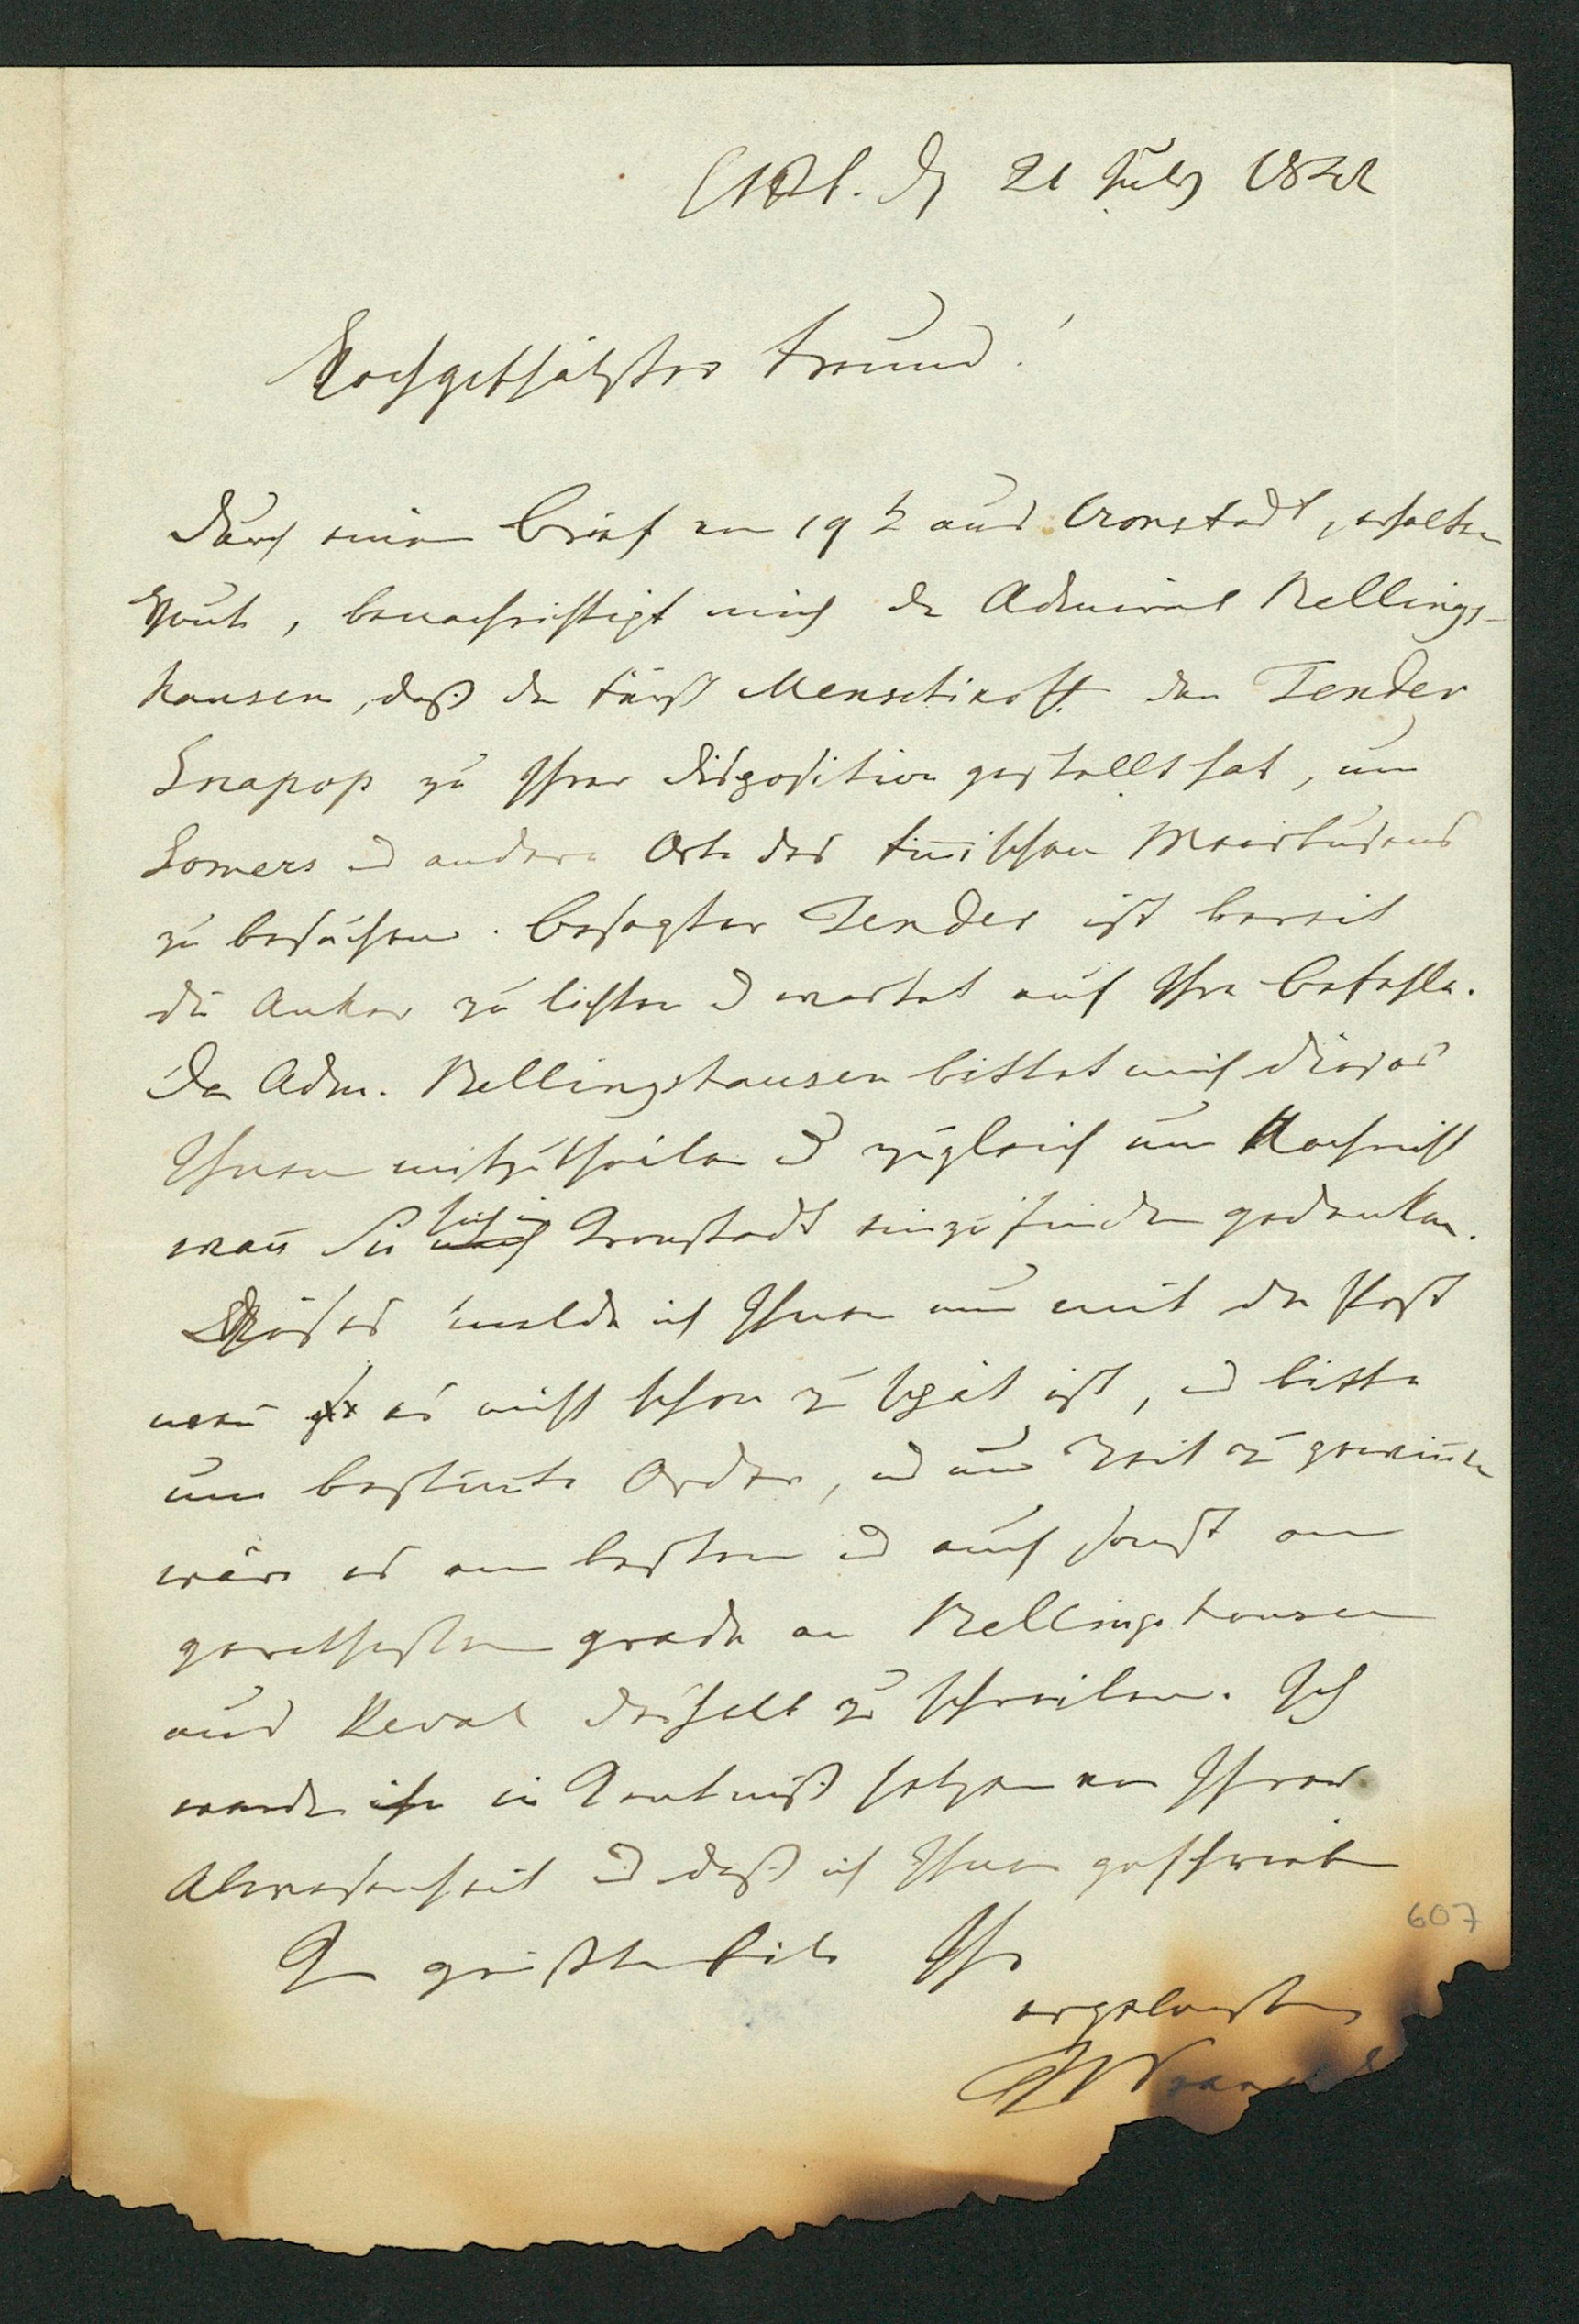 StPtb. d 21 July
Hochgeschätzter Freund!
Durch einen Brief vom 19t aus Cronstadt, erhalten
heute, benachrichtigt mich der Admiral Bellings-
hausen, daß der Fürst Menschikoff den Tender
Snapop zu Ihrer Disposition gestellt hat, um
Somers und andere Orte des Finnischen Meerbusens
zu besuchen. Besagter Tender ist bereit
die Anker zu lichten und wartet auf Ihre Befehle.
Der Adm. Bellingshausen bittet mich dieses
Ihnen mitzutheilen und zugleich um Nachricht
wann Sie sich in Cronstadt einzufinden gedenken.
Dieses melde ich Ihnen nun mit der Post
wenn es nicht schon zu spät ist, und bitte
um bestimte Order, und um Zeit zu gewinnen
wäre es am besten und auch sonst am
gerathesten grade an Bellingshausen
aus Reval deshalb zu schreiben. Ich
werde ihn in Kentniß setzen von Ihrer
Abwesenheit und daß ich Ihnen geschrieben
Ihr
ergebenster
Wrangell
607